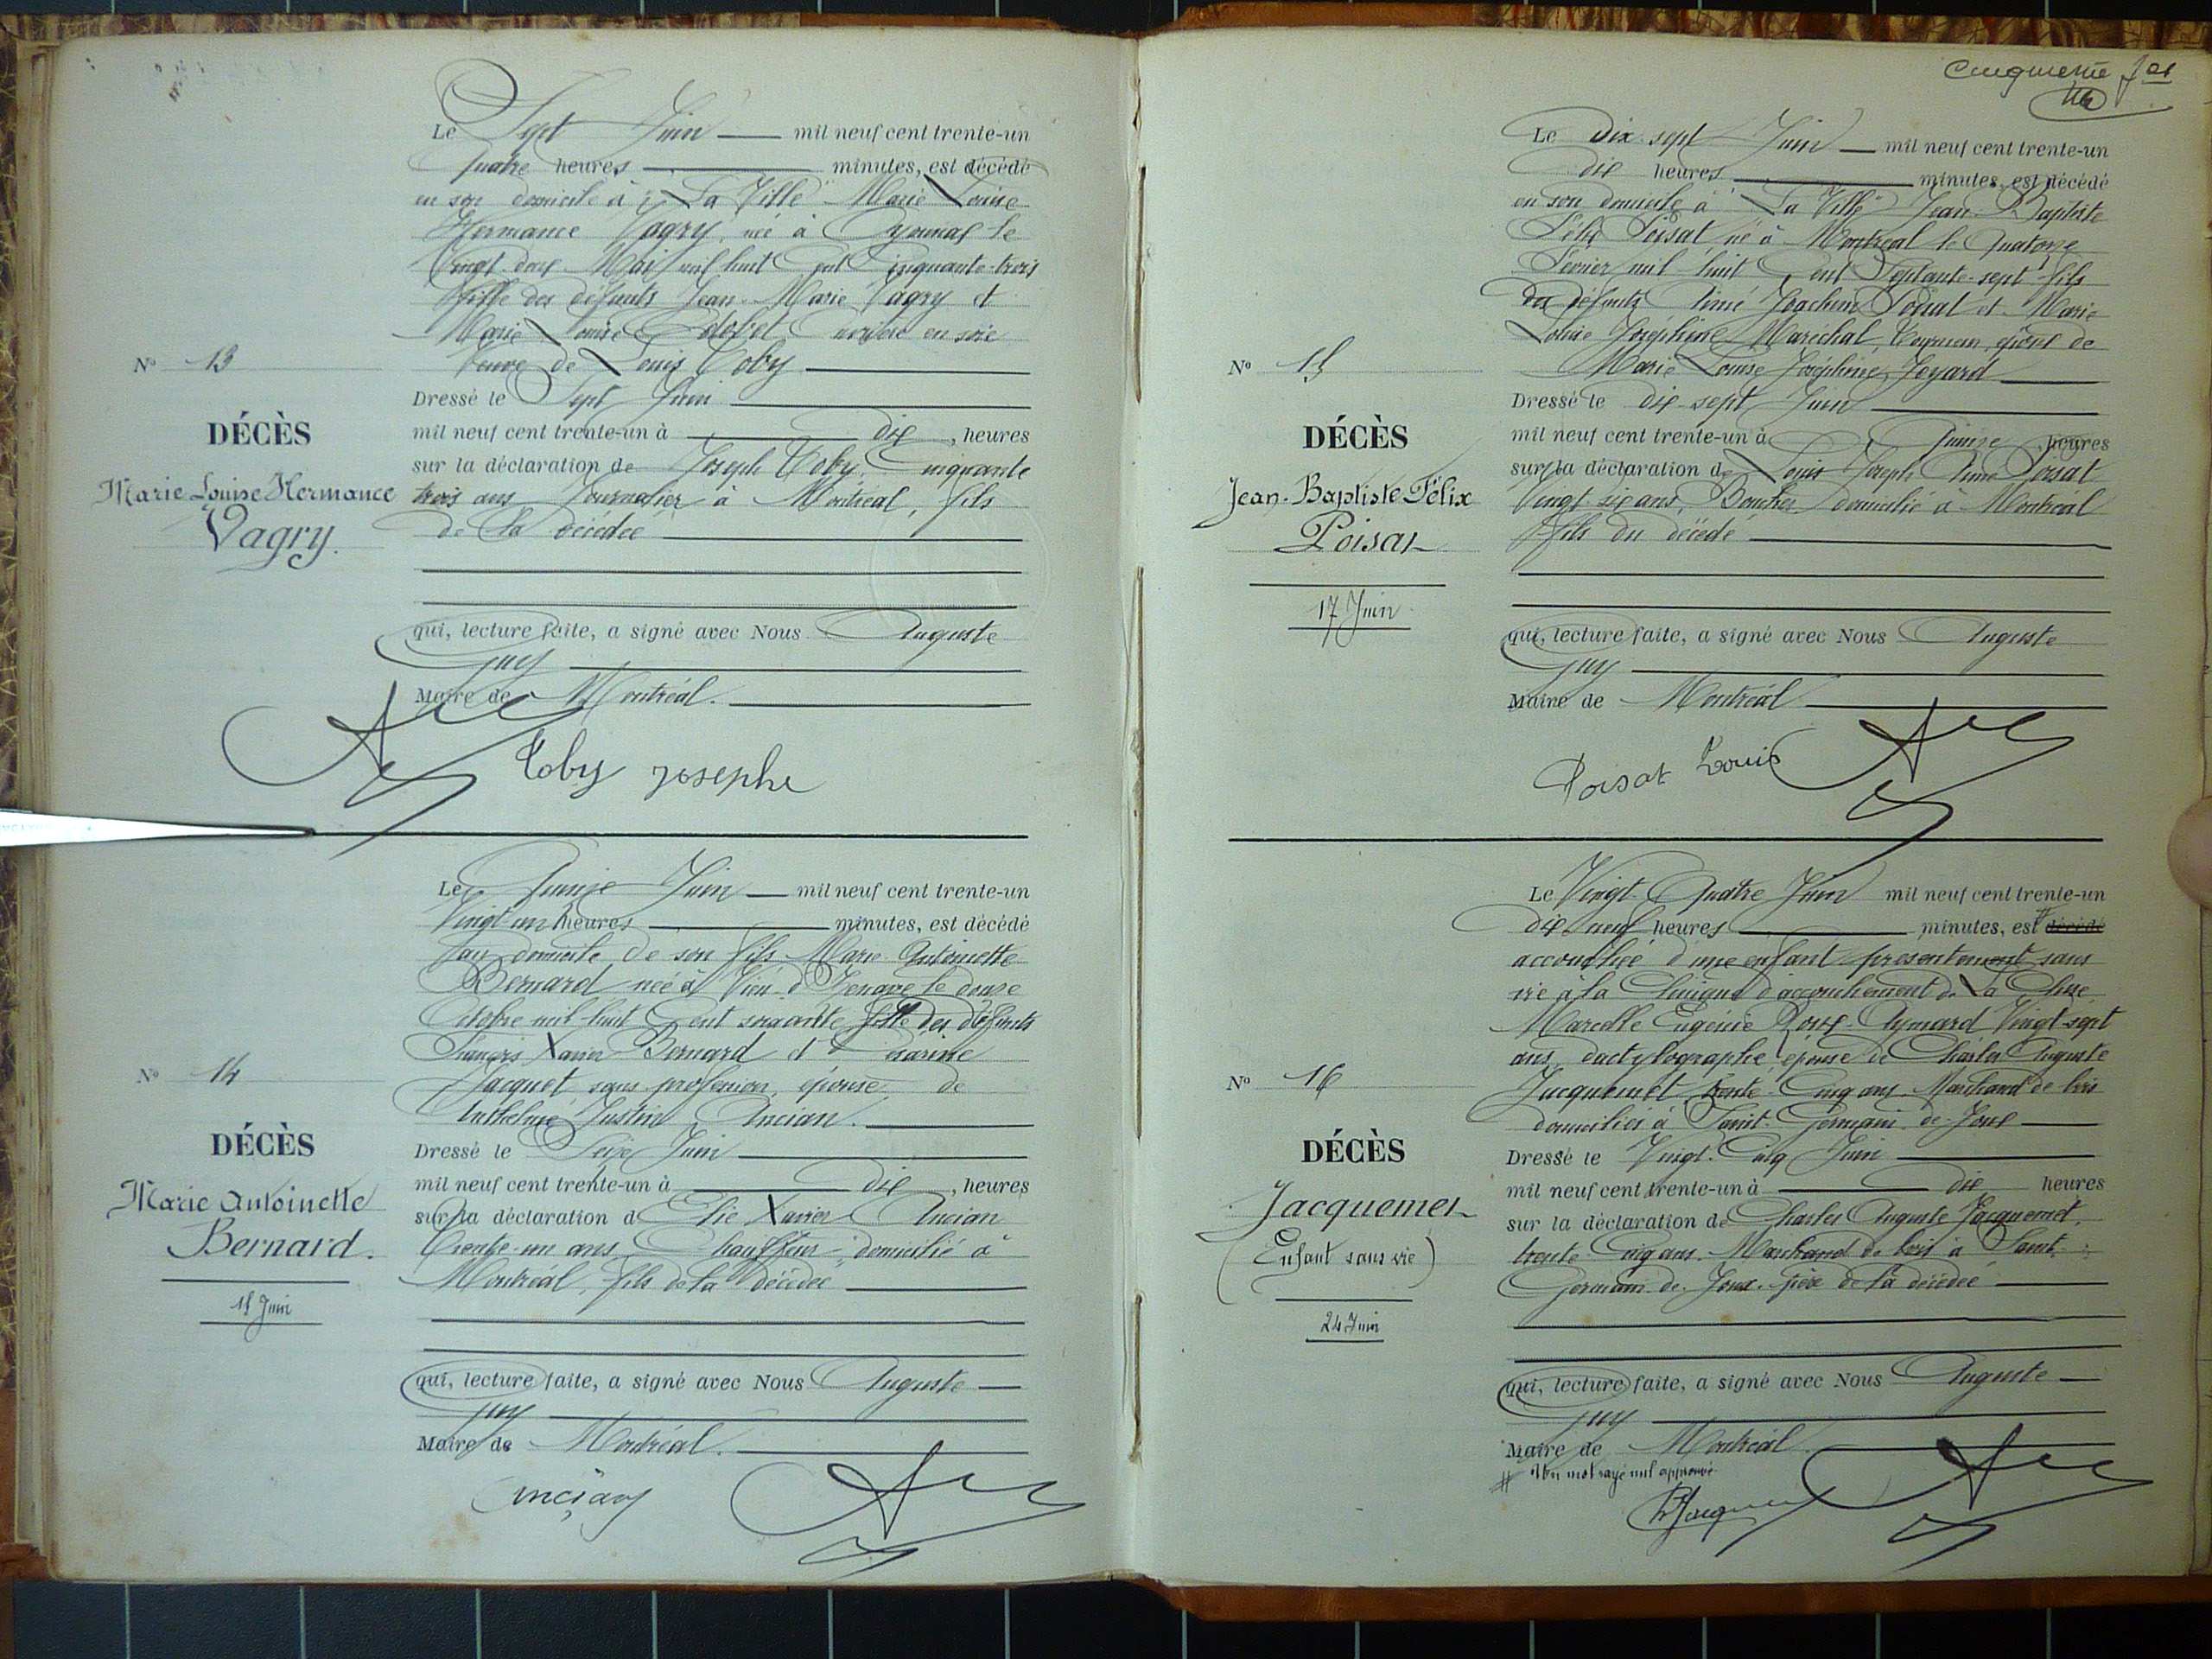 Le Sept Juin mil neuf cent trente-un
quatre heures minutes, est décédé
en son domicile à "La Ville" Marie Louise
Hermance Vagry, née à Oyonnax le
Vingt deux Mai mil huit cent cinquante-trois
fille des défunts Jean-Marie Vagry et
Marie Louise ouvrière en soie
Veuve de Louis Coby
No 13
DÉCÈS
Marie Louise Hermance
Vagry.
Dressé le Sept Juin
mil neuf cent trente-un à dix, heures
sur la déclaration de Joseph Coby, Cinquante
trois ans Journalier à Montréal, fils
de la décédée
qui, lecture faite, a signé avec Nous Auguste
Guy
Maire de Montréal.
Coby josephe
Le Quinze Juin mil neuf cent trente-un
Vingt-un heures minutes, est décédé
au domicile de son fils Marie Antoinette
Bernard née à Vieu d'Izenave le douze
Octobre mil huit Cent soixante fille des défunts
François Xavier Bernard et Césarine
Jacquet, sans profession, épouse de
Anthelme Justin Ancian.
No 14
DÉCÈS
Marie Antoinette
Bernard.
15 Juin
Dressé le Seize Juin
mil neuf cent trente-un à dix, heures
sur la déclaration d Elie Xavier Ancian
trente-un ans, Chauffeur, domicilié à
Montréal, fils de la décédée
qui, lecture faite, a signé avec Nous Auguste
Guy
Maire de Montréal.
Ancian
Cinquième
Le Dix-sept Juin mil neuf cent trente-un
dix heures minutes, est décédé
en son domicile à "La Ville" Jean-Baptiste
Félix Poisat né à Montréal le Quatorze
Février mil huit Cent Septante-sept fils
des défunts Aimé Joachim Poisat et Marie
Louise Joséphine Maréchal, époux de
Marie Louise Joséphine Joyard
No 15
DÉCÈS
Jean-Baptiste-Félix
Poisat
17 Juin
Dressé le dix-sept Juin
mil neuf cent trente-un à Quinze heures
sur la déclaration de Louis Joseph Aimé Poisat
Vingt six ans, Boucher domicilié à Montréal
fils du décédé
qui, lecture faite, a signé avec Nous Auguste
Guy
Maire de Montréal
Poisat Louis
Le Vingt-Quatre Juin mil neuf cent trente-un
dix-neuf heures minutes, est # décédé
accouchée d'une enfant présentement sans
vie à la Clinique d'accouchement de La Cluse
Marcelle Eugénie Roux-Aymard Vingt-sept
ans, dactylographe, épouse de Charles Auguste
Jacquemet, trente-Cinq ans, Marchand de bois
domiciliés à Saint-Germain-de-Joux
No 16
DÉCÈS
Jacquemet
(Enfant sans vie)
24 Juin
Dressé le Vingt-Cinq Juin
mil neuf cent trente-un à dix heures
sur la déclaration de Charles Auguste Jacquemet,
trente-Cinq ans, Marchand de bois à Saint-
Germain-de-Joux, père de la décédée
qui, lecture faite, a signé avec Nous Auguste
Guy
Maire de Montréal
# Un mot rayé nul approuvé